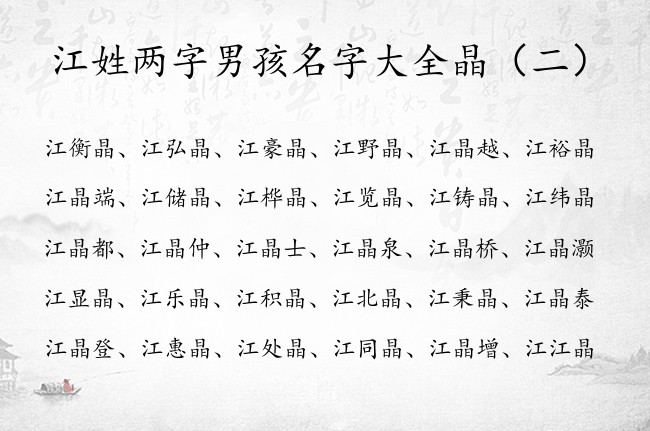 江姓两字男孩名字大全晶（二）
江衡晶、江弘晶、江豪晶、江野晶、江晶越、江裕晶
江晶端、江储晶、江桦晶、江览晶、江铸晶、江纬晶
江晶都、江晶仲、江晶士、江晶泉、江晶桥、江晶灏
江显晶、江乐晶、江积晶、江北晶、江秉晶、江晶泰
江晶登、江惠晶、江处晶、江同晶、江晶增、江江晶